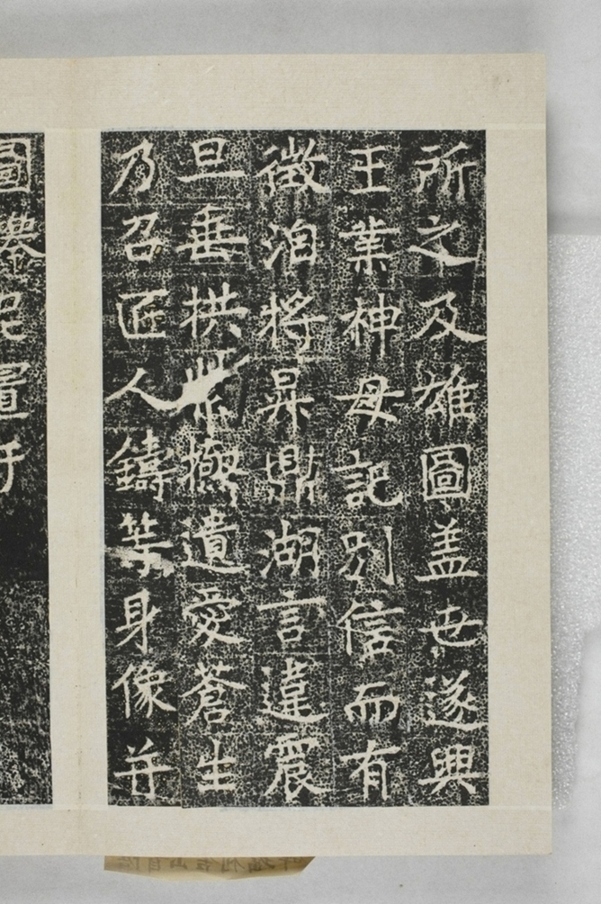 所之及雄圖盖世遂興
王業神母記別信而有
徵洎將昇鼎湖言違震
旦垂拱巖廊遺愛蒼生
乃召匠人鑄等身像并
國置于